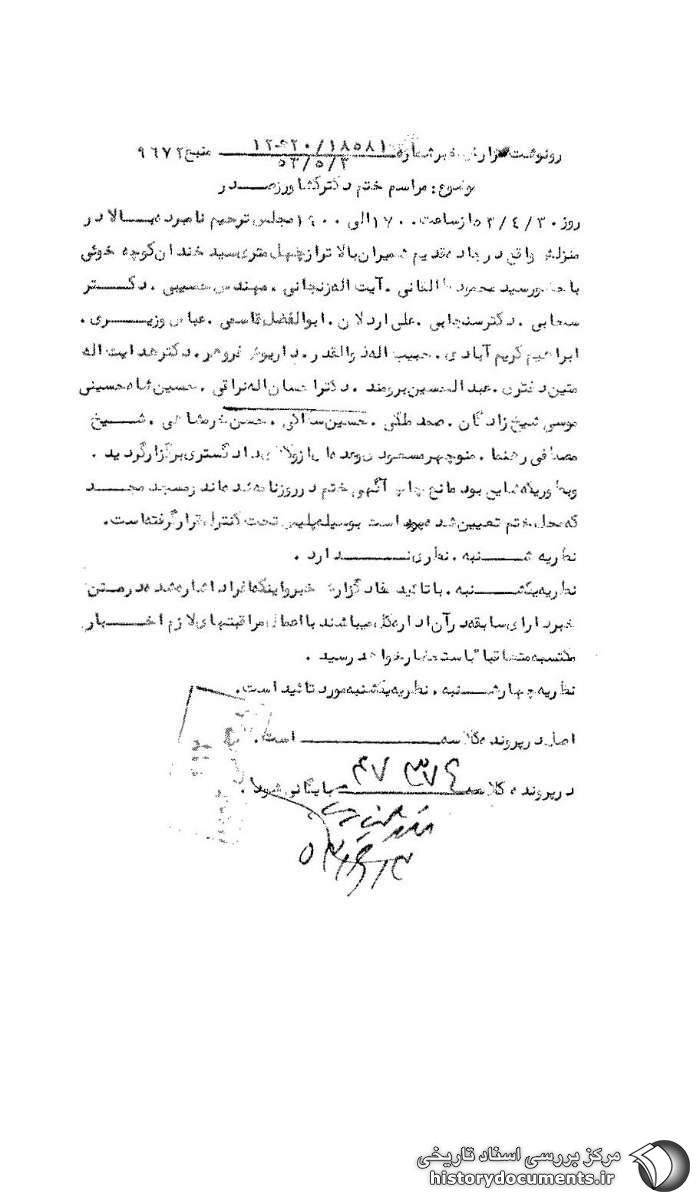 رونوشت گزارش به شماره ۱۲۰/۱۸۵۸۱ منبع ۹۶۷۲
۵۳/۵/۳
موضوع: مراسم ختم دکتر کشاورز صدر
روز ۳۰/۴/ از ساعت ۱۷۰۰ الی ۱۹۰۰ مجلس ترحیم نامبرده بالا در
منزلش واقع در جاده قدیم شمیران بالاتر از چهل متری سید خندان کوچه خوئی
با حضور سید محمود طالقانی . آیت اله زنجانی . مهندس حسیبی . دکتر
سحابی . دکتر سنجابی . علی اردلان . ابوالفضل قاسمی . عباس وزیری .
ابراهیم کریم آبادی . حبیب اله ذوالقدر . داریوش فروهر . دکتر هدایت اله
متین دفتری . عبدالحسین برومند . دکتر احسان اله نراقی . حسین شاه حسینی
موسی شیخ زادگان . صمد ملکی . حسین سالکی . حسن خرمشاهی . شیخ
مصطفی رهنما . منوچهر مسعودی وعده ای از وکلای دادگستری برگزار گردید .
و بطوریکه شایع بود مانع چاپ آگهی ختم در روزنامه شده اند و مسجد مجد
که محل ختم تعیین شده بود است بوسیله پلیس تحت کنترل قرار گرفته است.
نظریه شنبه . نظری ندارد .
نظریه یکشنبه . با تائید مفاد گزارش خبر و اینکه افراد اشاره شده در متن
خبر دارای سابقه در آن اداره کل میباشند با اعمال مراقبتهای لازم اخبار
مکتسبه متعاقبا" باستحضار خواهد رسید .
نظریه چهارشنبه . نظریه یکشنبه مورد تائید است.
اصل در پرونده کلاسه ــــ است .
در پرونده کلاسه ۴۷۳۷۴ بایگانی شود .
مرکز بررسی اسناد تاریخی
historydocuments.ir